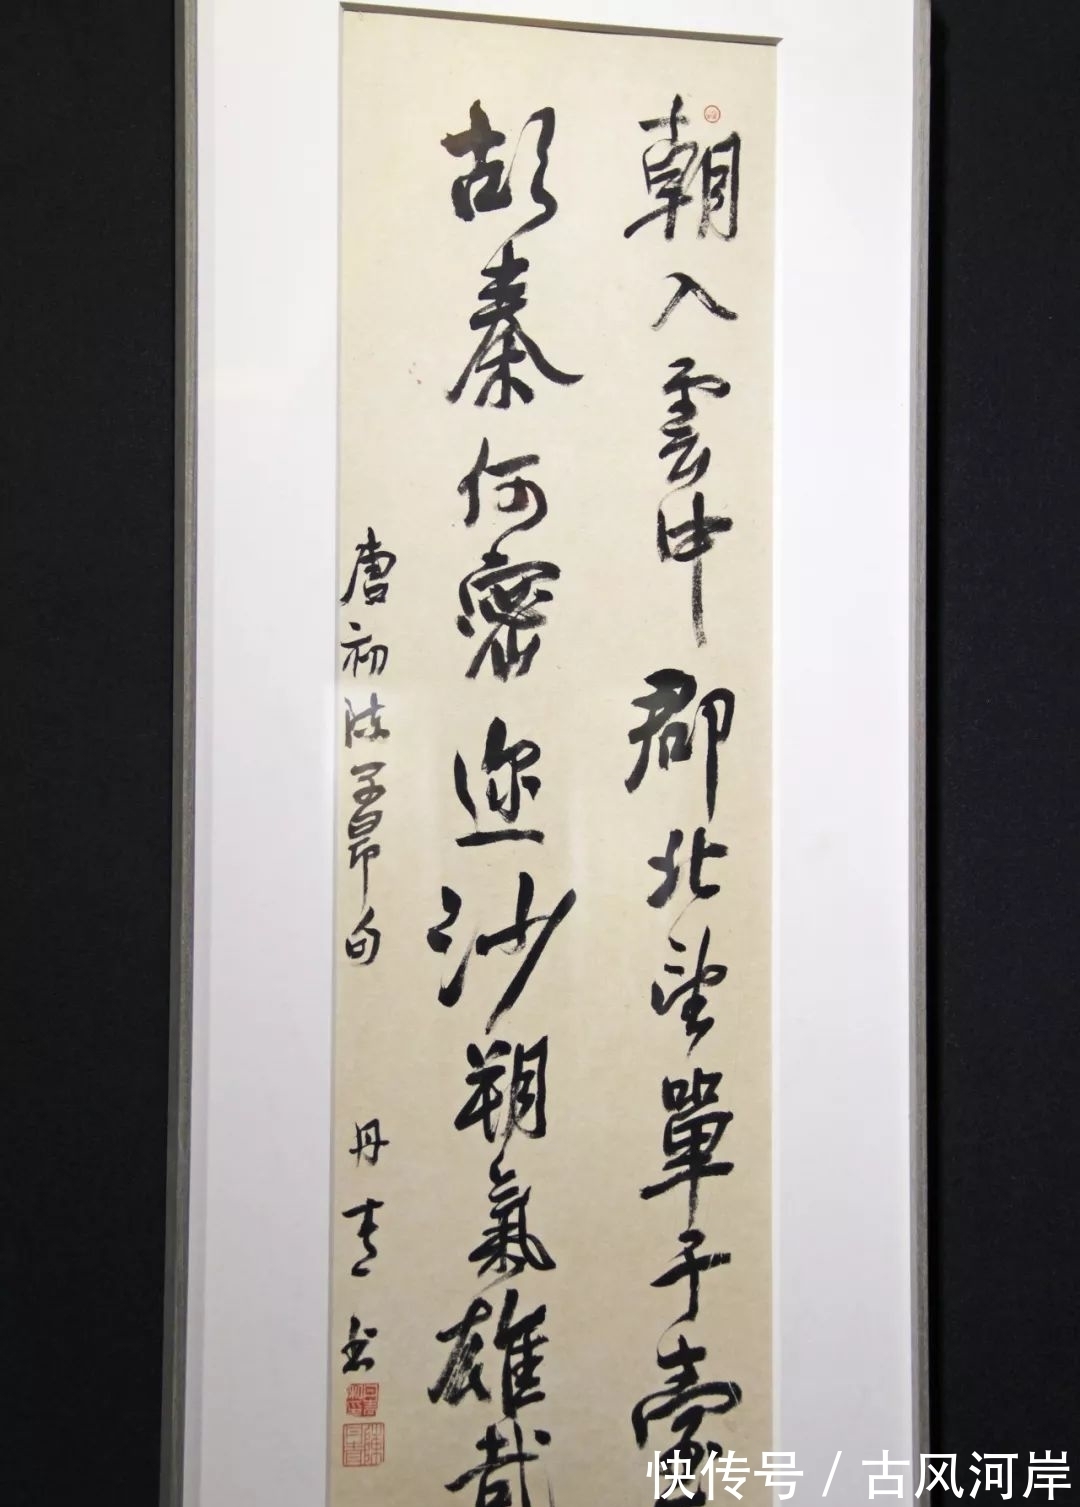 朝入雲中郡北望單于臺
胡秦何密邇沙朔氣雄哉
唐初陳子昂句
丹青書
快传号 / 古风河岸